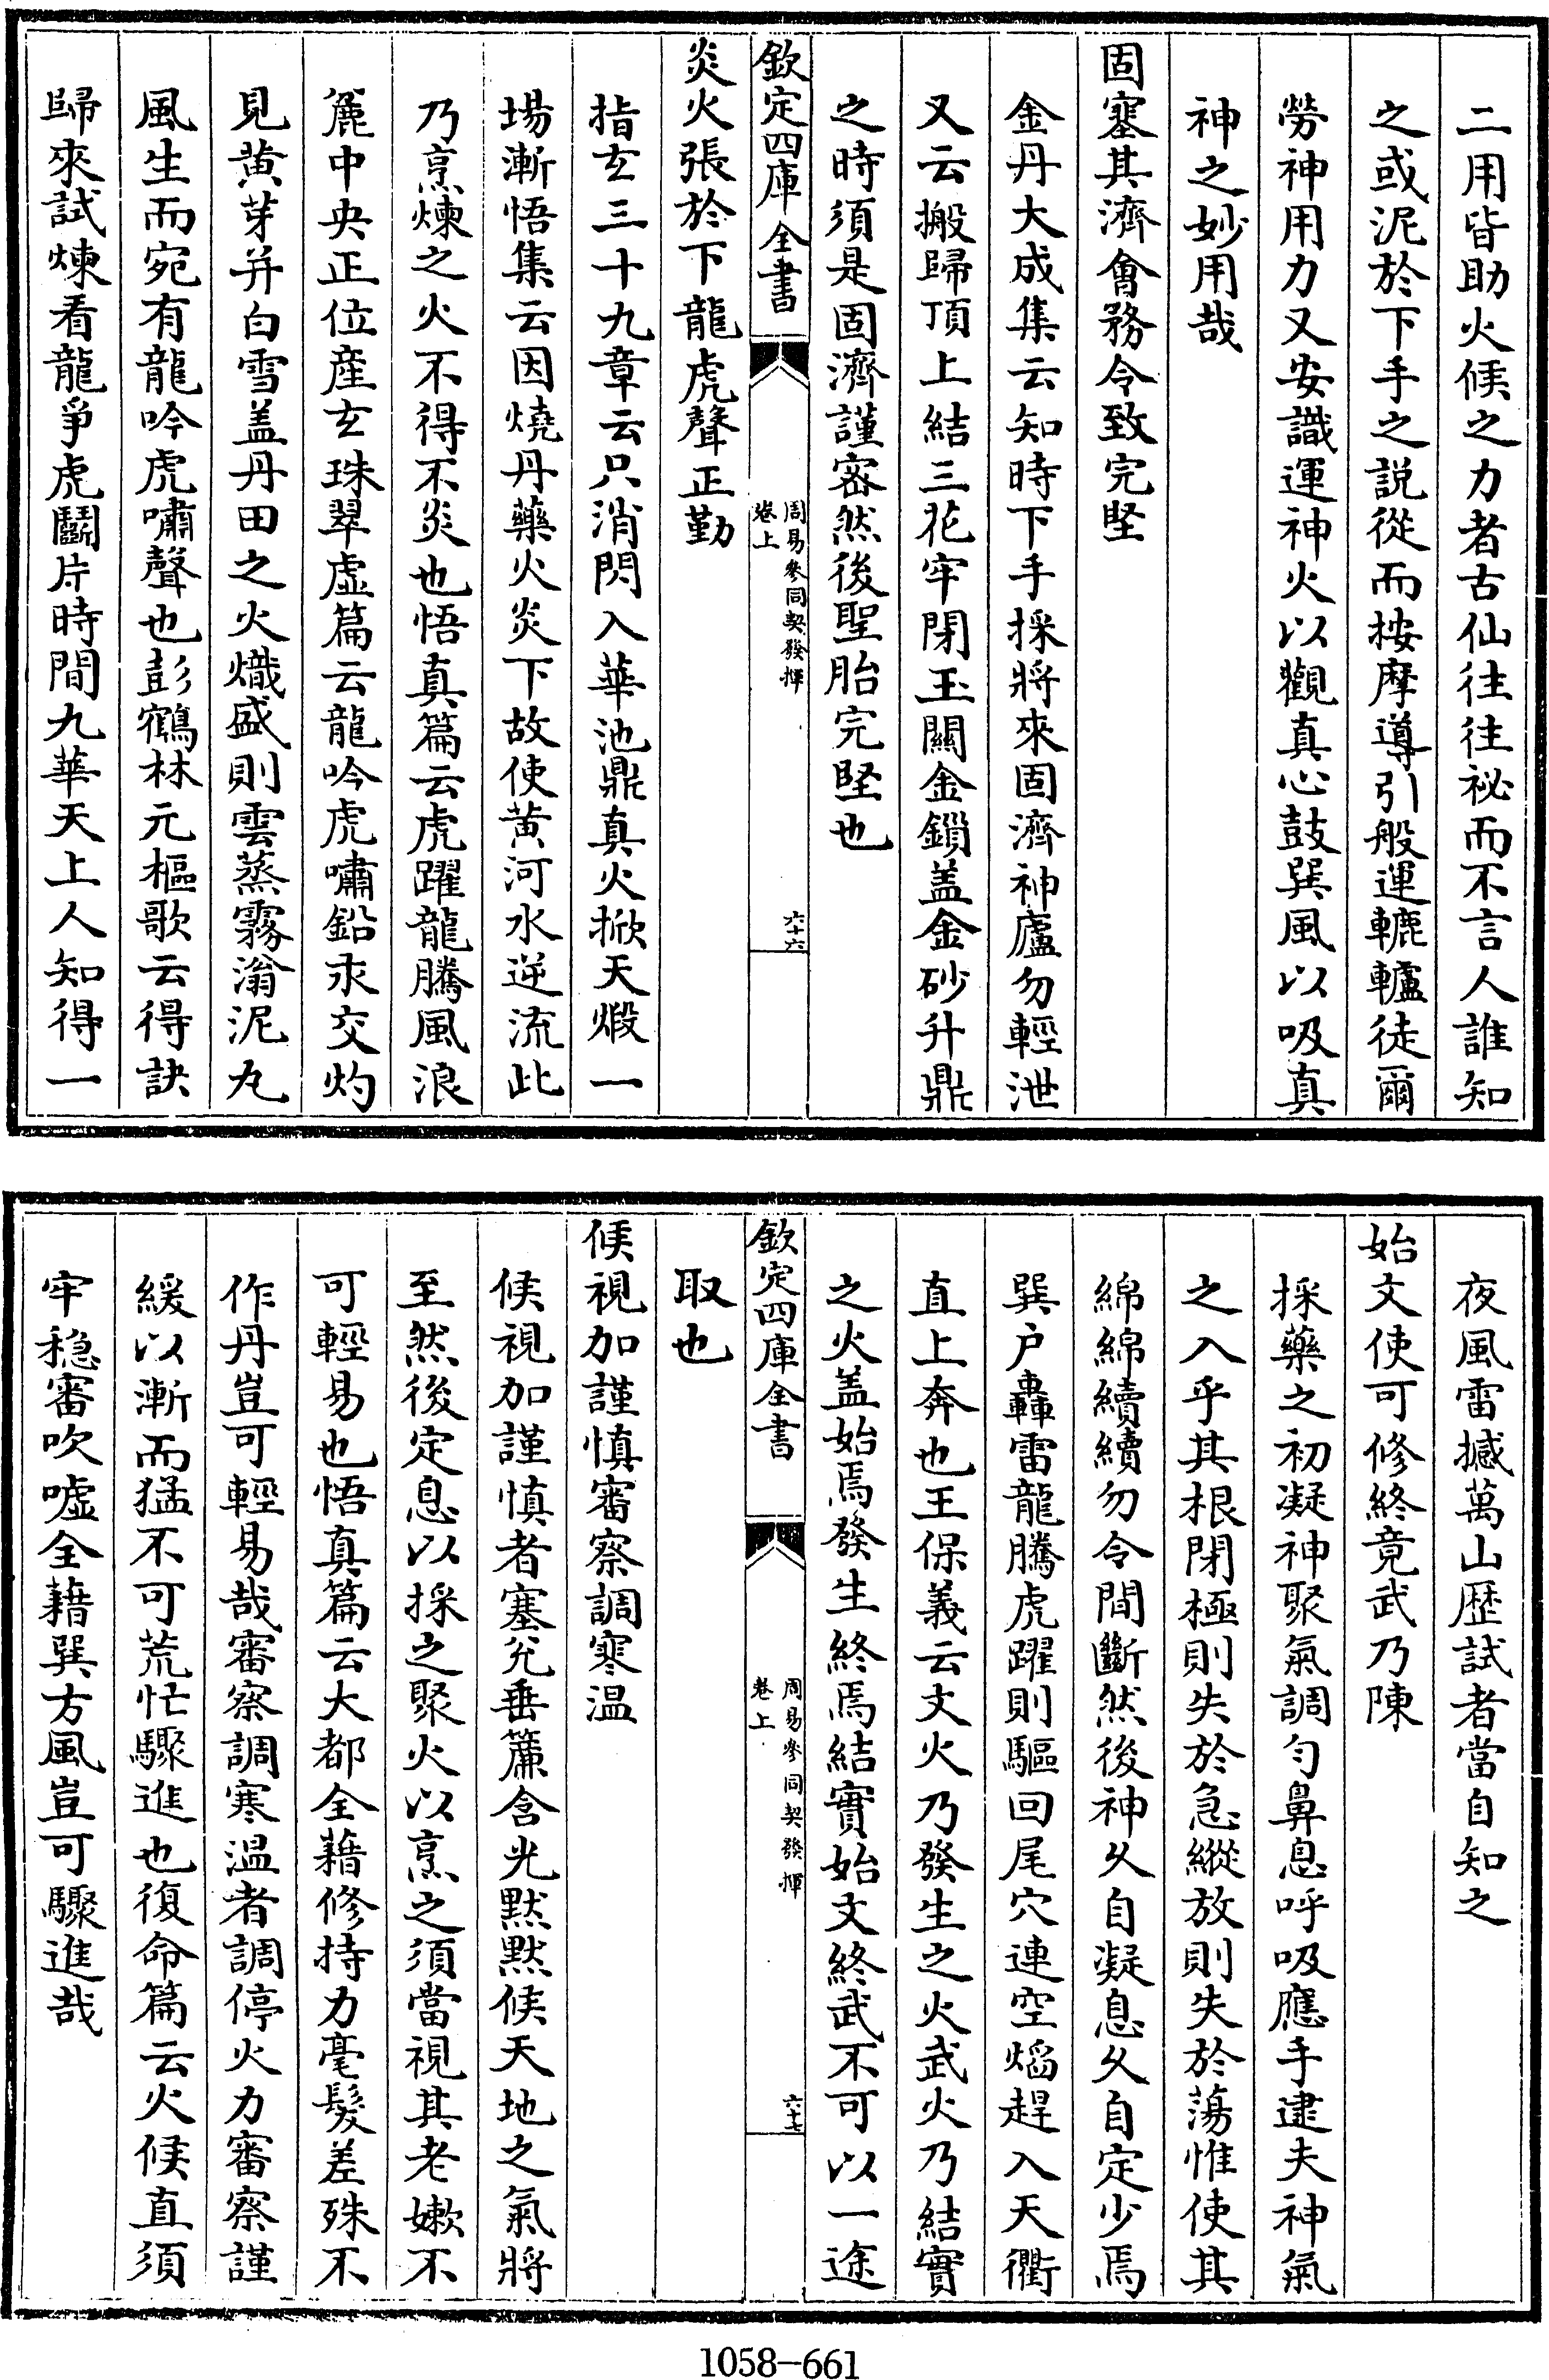 二用皆助火候之力者古仙往往祕而不言人誰知
之或泥於下手之説從而按摩導引般運轆轤徒爾
勞神用力又安識運神火以觀真心鼓巽風以吸真
神之妙用哉
固塞其濟會務令致完堅
金丹大成集云知時下手採將來固濟神廬勿輕泄
又云搬歸頂上結三花牢閉玉關金鎖盖金砂升鼎
之時須是固濟謹宻然後聖胎完堅也
欽定四庫全書
周易參同契發揮
卷上
六十六
炎火張於下龍虎聲正勤
指玄三十九章云只消閃入華池鼎真火掀天煅一
場漸悟集云因燒丹藥火炎下故使黄河水逆流此
乃烹煉之火不得不炎也悟真篇云虎躍龍騰風浪
麄中央正位産玄珠翠虚篇云龍吟虎嘯鉛汞交灼
見黄芽并白雪盖丹田之火熾盛則雲蒸霧滃泥丸
風生而宛有龍吟虎嘯聲也彭鶴林元樞歌云得訣
歸來試煉看龍爭虎鬬片時間九華天上人知得一
夜風雷撼萬山歴試者當自知之
始文使可修終竟武乃陳
採藥之初凝神聚氣調勻鼻息呼吸應手逮夫神氣
之入乎其根閉極則失於急縱放則失於蕩惟使其
綿綿續續勿令間斷然後神久自凝息久自定少焉
巽户轟雷龍騰虎躍則驅回尾穴連空焰趕入天衢
直上奔也王保義云文火乃發生之火武火乃結實
之火盖始焉發生終焉結實始文終武不可以一途
欽定四庫全書
周易參同契發揮
卷上
六十七
取也
候視加謹慎審察調寒温
候視加謹慎者塞兊垂簾含光黙黙候天地之氣將
至然後定息以採之聚火以烹之須當視其老嫩不
可輕易也悟真篇云大都全藉修持力毫髮差殊不
作丹豈可輕易哉審察調寒温者調停火力審察謹
緩以漸而猛不可荒忙驟進也復命篇云火候直須
牢穏審吹嘘全藉巽方風豈可驟進哉
1058-661